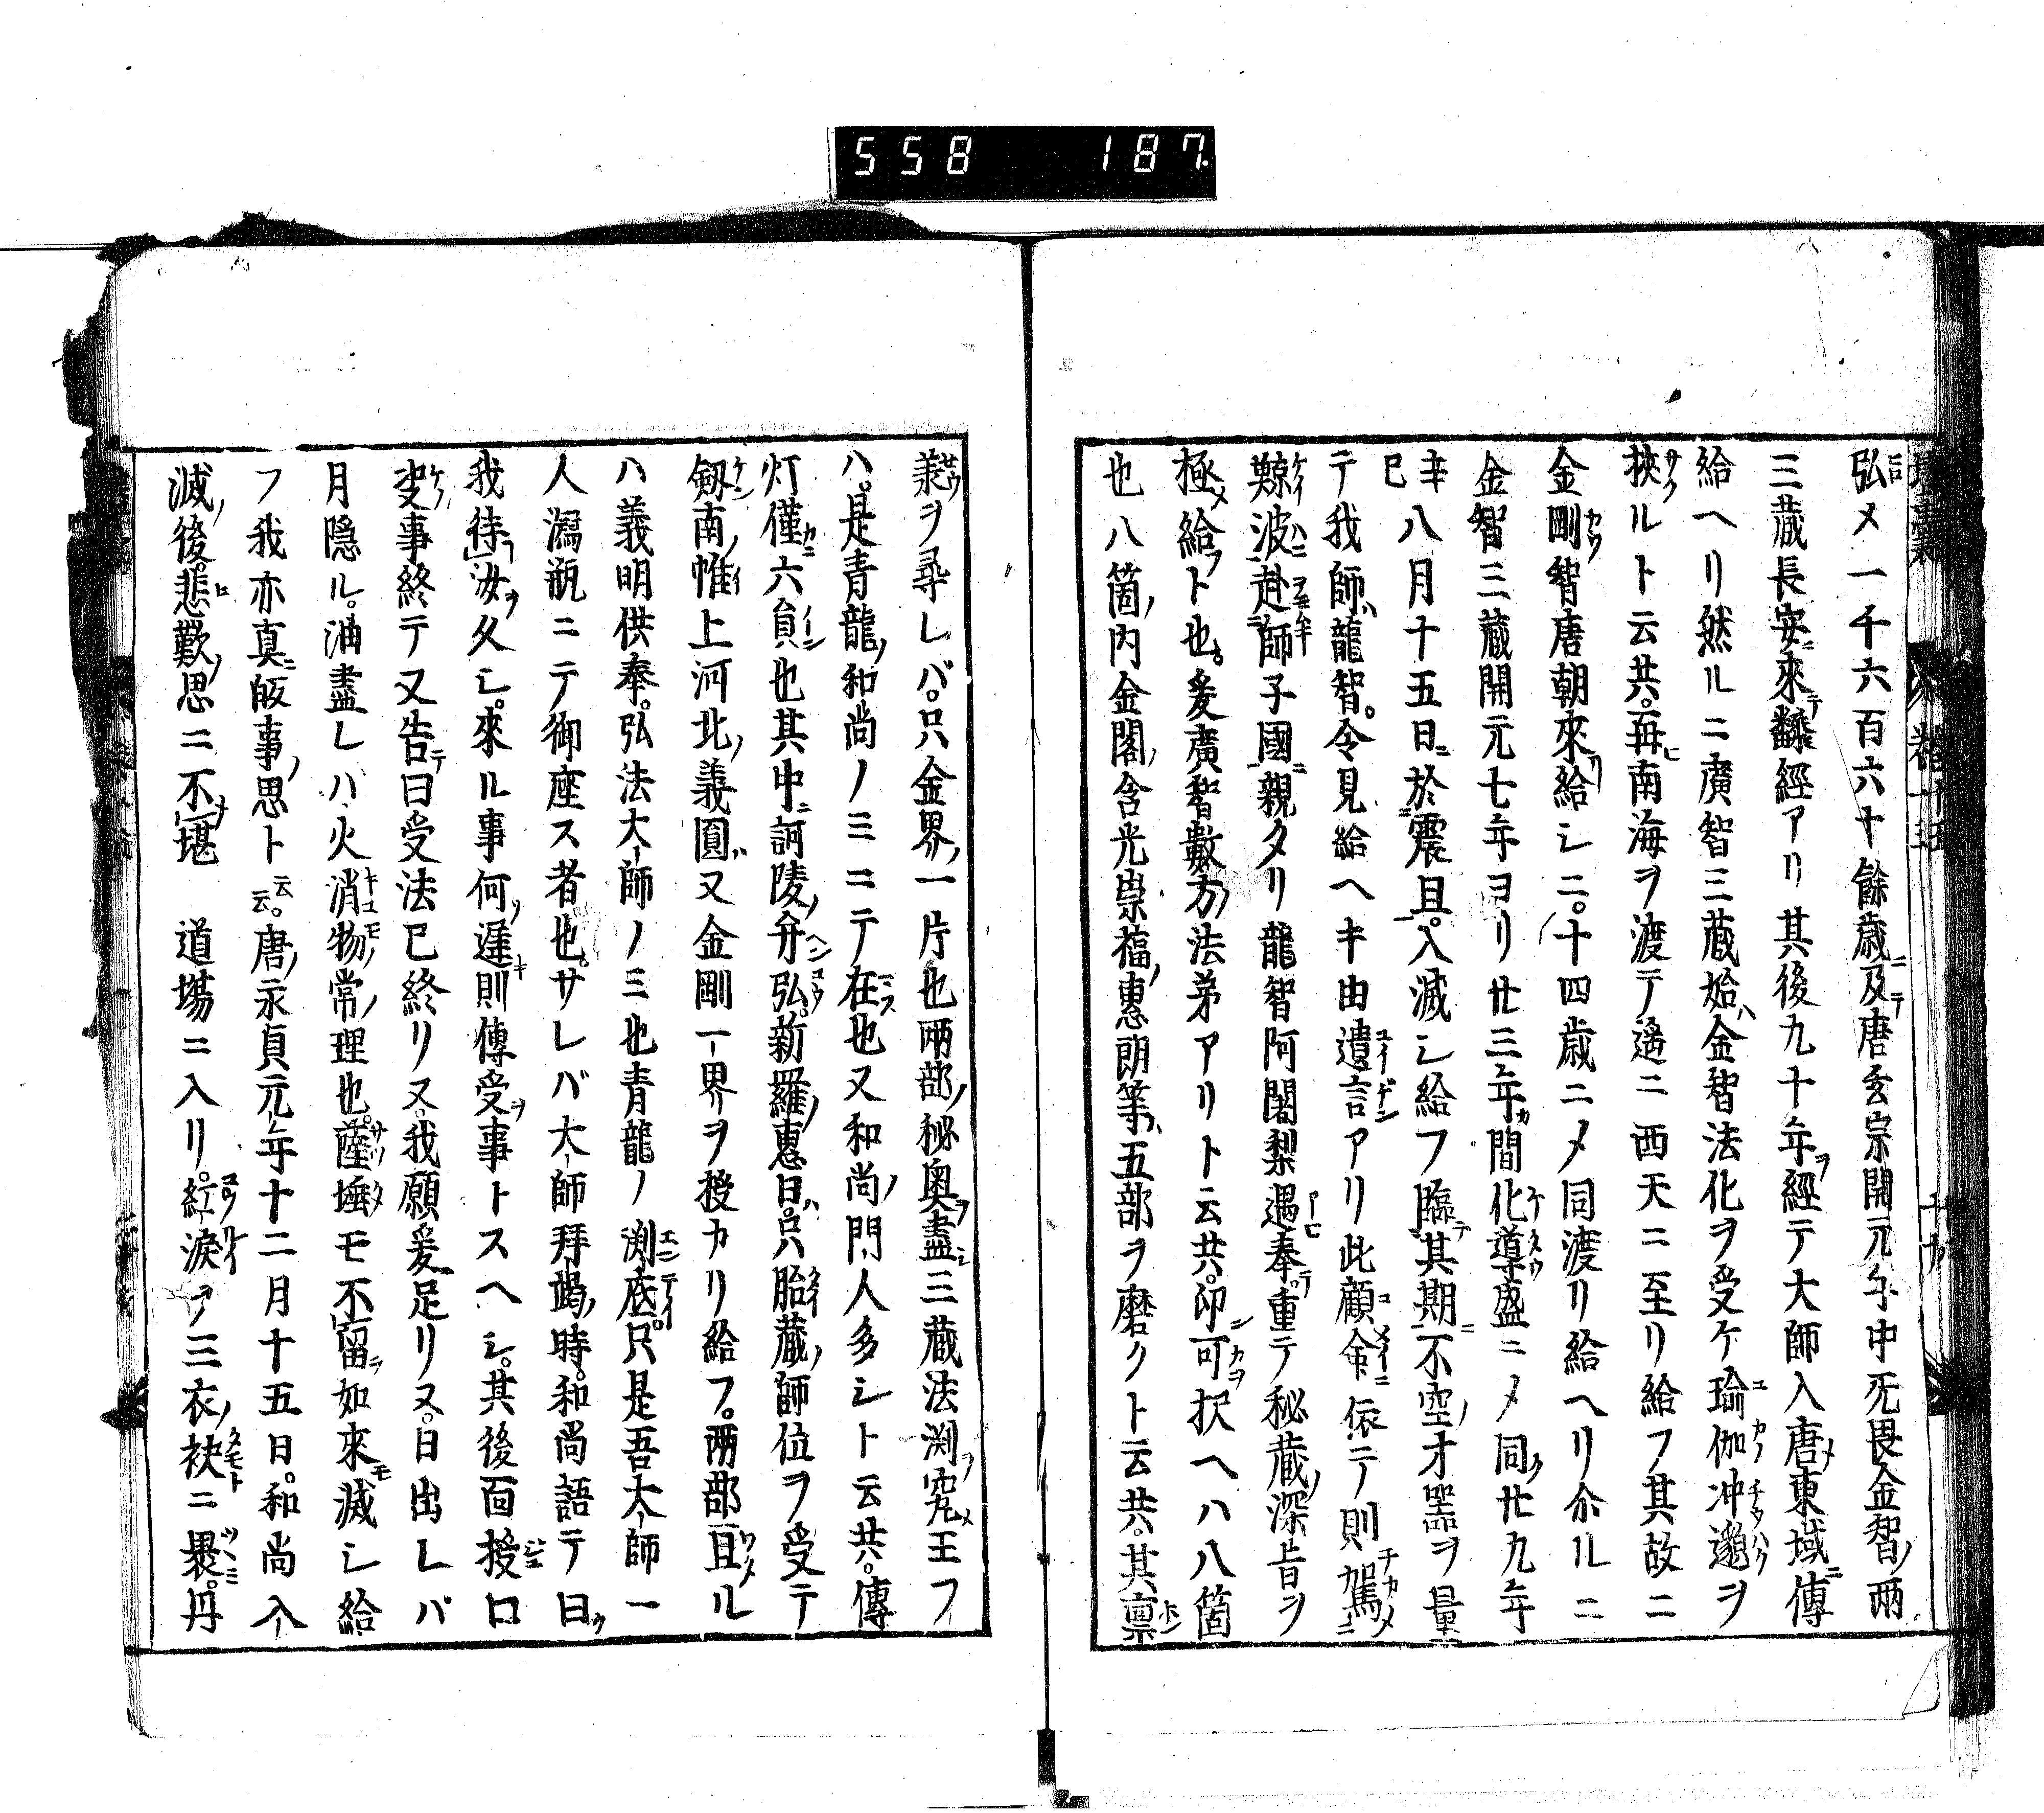 558 187.
弘メ一千六百六十餘歳ニ及テ唐玄宗開元年中死畏金智ノ兩
三蔵長安ニ來テ飜經アリ其後九十年ヲ經テ大師入唐メ東域ニ傳
給ヘリ然ルニ廣智三蔵始ハ金智法化ヲ受ケ瑜伽冲邈ヲ
挾ルト云共。再ヒ南海ヲ渡テ遥ニ西天ニ至リ給フ其故ニ
金剛智唐朝來リ給シニ。十四歳ニメ同渡リ給ヘリ尒ルニ
金智三蔵開元七年ヨリ廿三年カ間化導盛ニメ同ク廿九年
辛巳八月十五日ニ於震旦。入滅シ給フ臨テ其期ニ不空ノ才器ヲ量
テ我師ハ龍智。令見給ヘキ由遺言アリ此顧命ニ依ニテ則駕ニ
鯨波ニ赴師子國ニ親タリ龍智阿闍梨遇奉テ。重テ秘蔵ノ深旨ヲ
極メ給フト也。爰廣智數方ノ法弟アリト云共。印可ヲ択ヘハ八箇
也八箇ノ内金閣ノ含光崇福ノ惠朗等ハ五部ヲ磨クト云共。其禀
羕ヲ尋レバ。只金界ノ一片也兩部ノ秘奥ヲ盡シ三蔵法渕ヲ究メ玉フ
ハ。是青龍ノ和尚ノミニテ在ス也又和尚ノ門人多シト云共。傳
灯僅カニ六負也其中ニ訶陵ノ弁弘。新羅ノ惠日ハ。只胎蔵ノ師位ヲ受テ
劔南ノ惟上河北ノ義圓ハ又金剛一界ヲ授カリ給フ。兩部ニ亘ル
ハ義明供奉。弘法大師ノミ也青龍ノ渕底。只是吾大師一
人瀉瓶ニテ御座ス者也。サレバ大師拜謁ノ時。和尚語テ曰ク
我待汝ヲ久シ。來ル事何ソ遅キ則傳受ヲ事トスヘシ。其後面授口
事終テ又告テ曰受法已終リヌ。我願爰足リヌ。日出レバ
月隠ル。油盡レハ火消物ノ常ノ理也。薩埵モ不留ラ如來モ滅シ給
フ我亦真ニ皈事ノ思ト云云。唐ノ永貞元年十二月十五日。和尚入
滅ノ後。悲歎ノ思ニ不堪 道場ニ入リ。紅淚ヲ三衣ノ袂ニ褁。丹